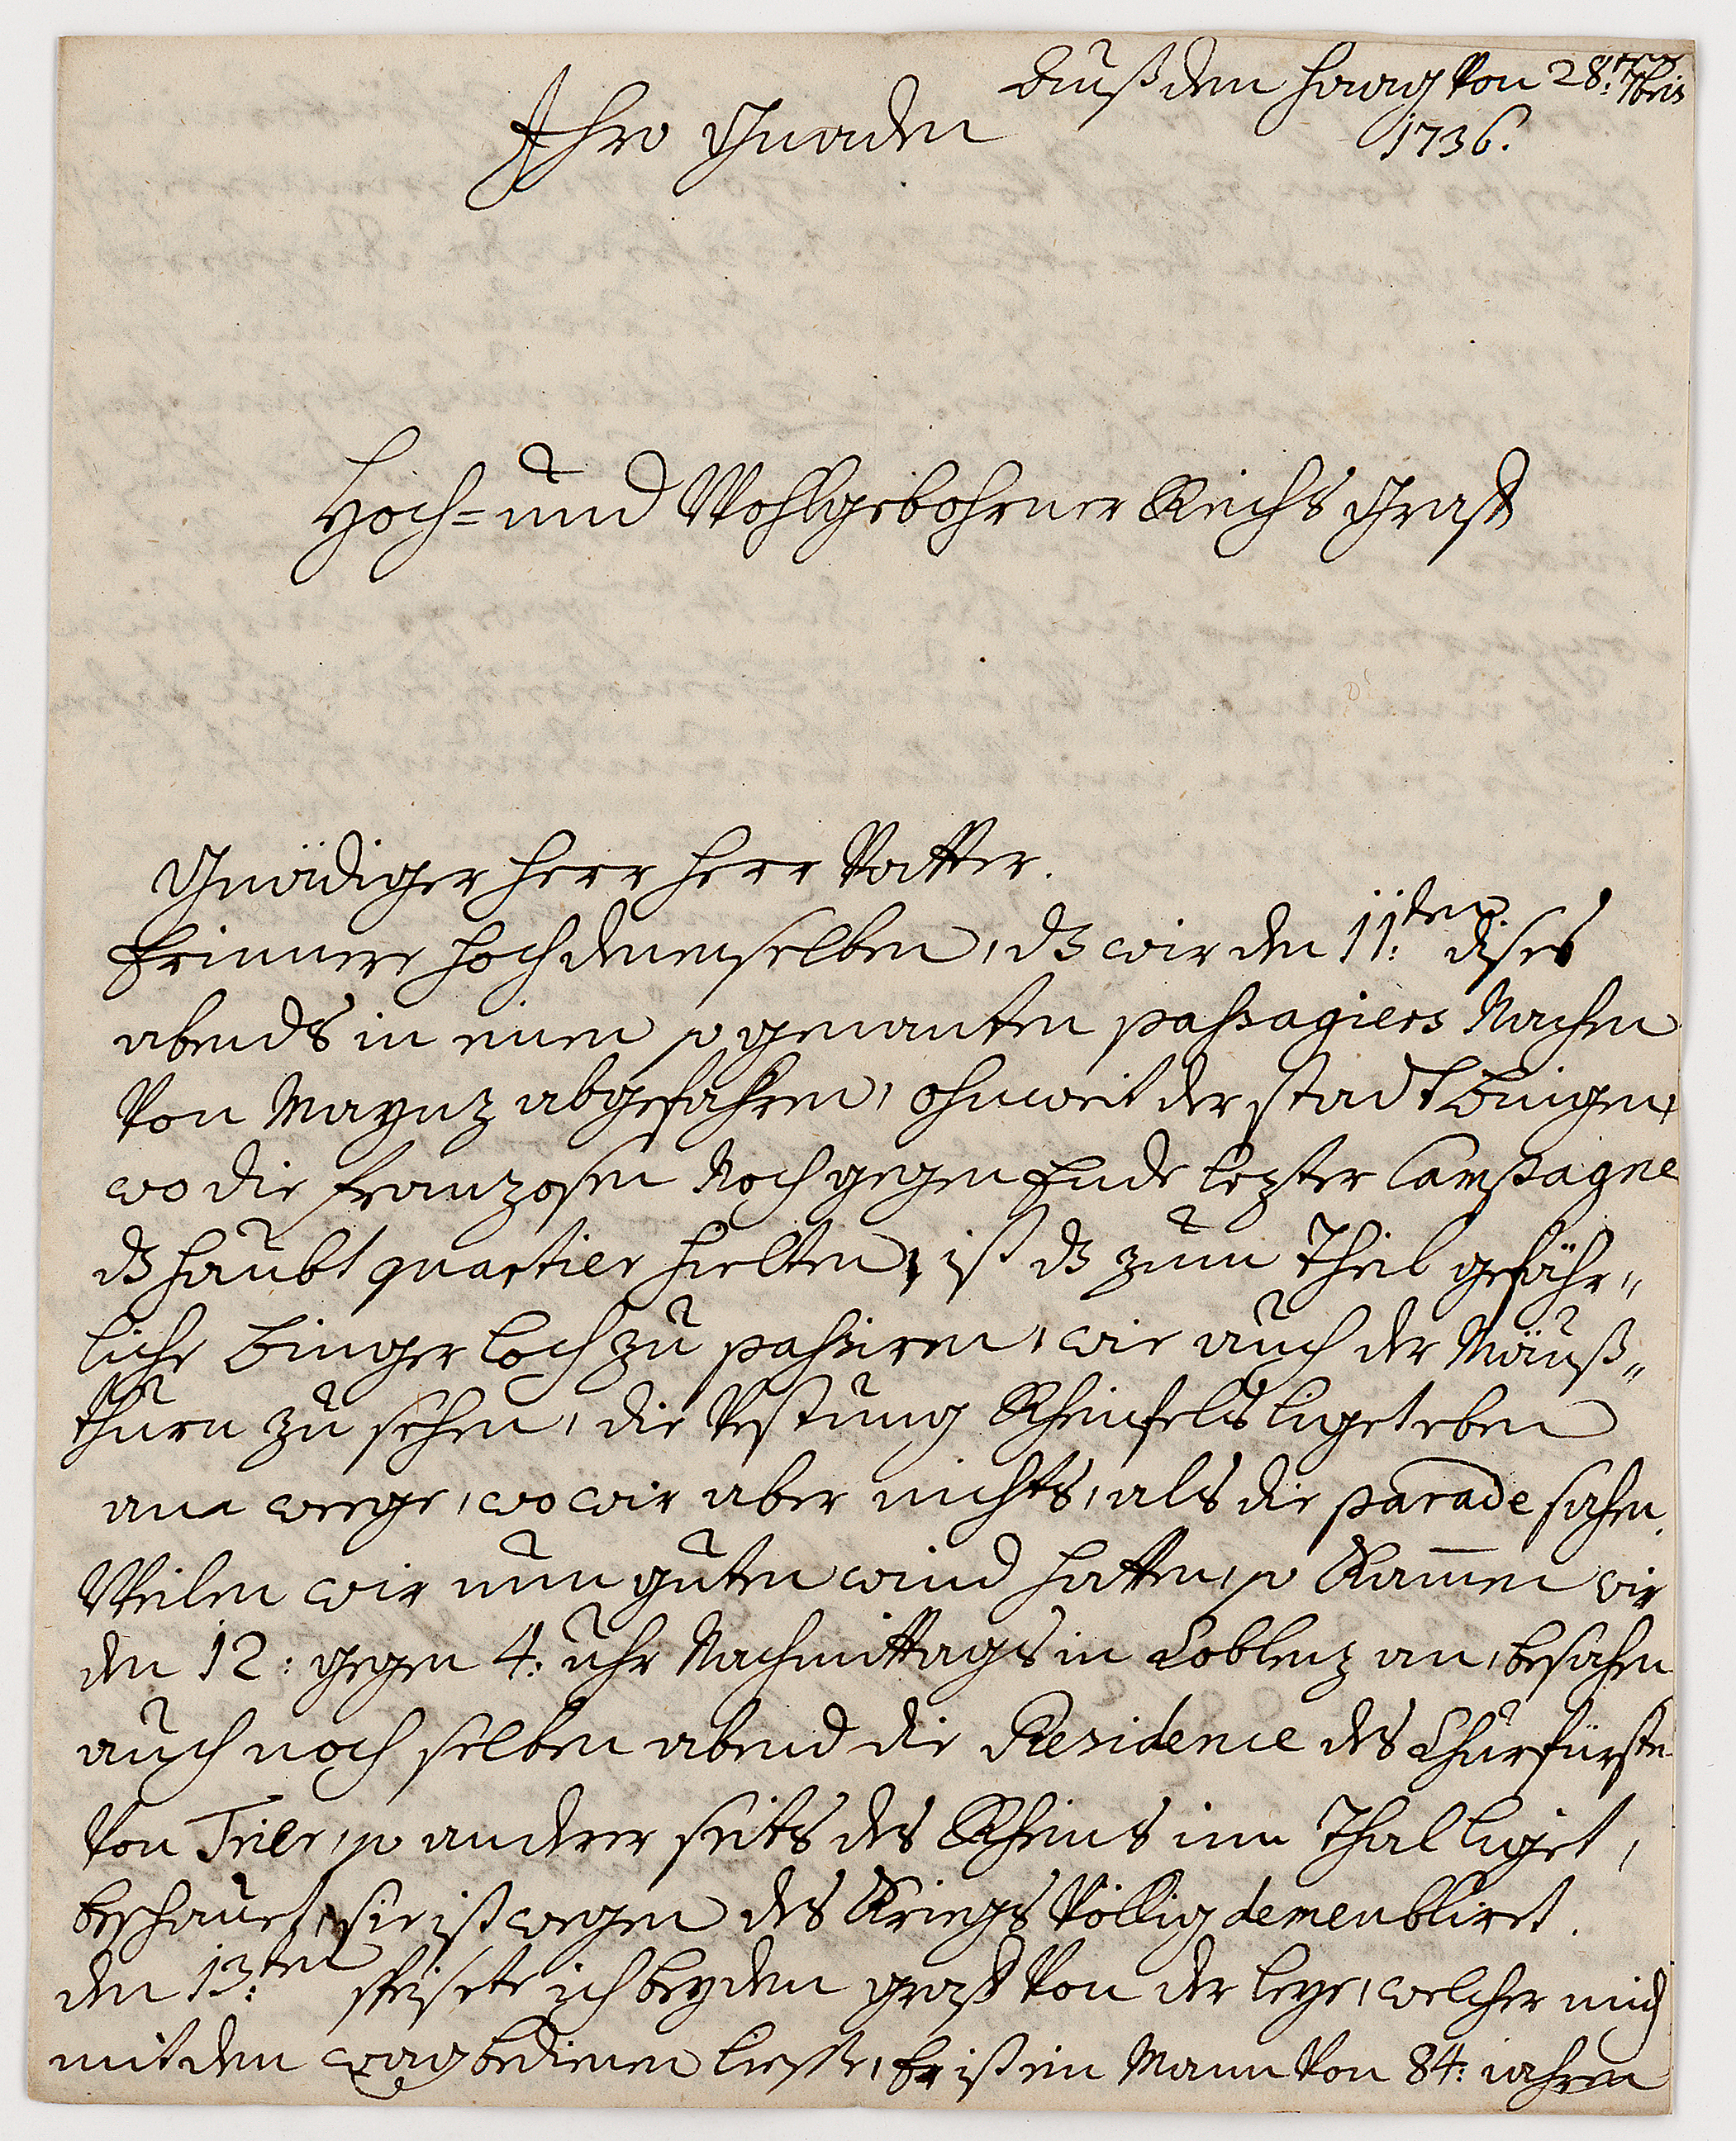 Auß den Haag von 28ten 7bris
1736.
Ihro Gnaden
Hoch= und Wohlgebohrner Reichs Graff
Gnädiger Herr Herr Vatter.
Erinnere hochdenenselben, dz wir den 11:ten dises
abends in einen so genanten passagiers Nachen
Von Maynz abgefahren, ohnweit der stadt Bingen,
wo die franzosen Noch gegen Ende lezter Campagne
dz haubt quartier hielten, ist dz zum Theil gefähr„
liche Binger loch zu passiren, wie auch der Mäuß„
thurn zu sehen, die Vestung Rheinfels liget eben
am weege, wo wir aber nichts, als die parade sahen.
Weilen wir nun guten wind hatten, so Kam̅en wir
den 12: gegen 4: uhr Nachmittags in Coblenz an, besahen
auch noch selben abend die Residence des Churfürsten
Von Trier, so anderer seits des Rheins im Thal liget,
beschauet, sie ist wegen des Kriegs Völlig demeublirt.
den 13:ten speisete ich bey den graff Von der leye, welcher mich
mit den wag bedienen liesse, Er ist ein Mann Von 84: iahren